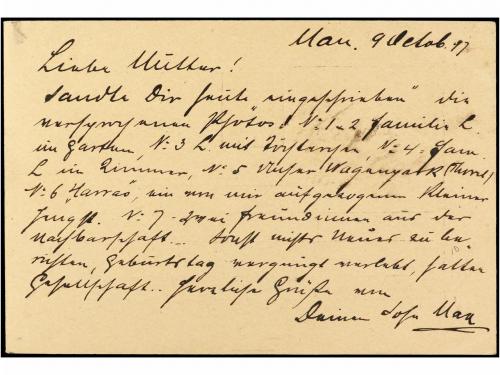 Mau. 9 Octob. 97
Liebe Mutter!
sandte Dir heute "eingeschrieben" die
versprochenen Photos: No 1-2 Familie L.
im Garten, No 3 L. mit Töchterchen, No 4. Fam.
L im Zimmer, No 5 Unser Wagenpark
No 6 "Harras", ein von mir aufgezogener kleiner
Hengst. No 7 - zwei Freundinnen aus der
Nachbarschaft... sonst nichts Neues zu be-
richten, Geburtstag vergnügt verlebt, hatten
Gesellschaft.. Herzliche Grüße von
Deinem Sohn Max